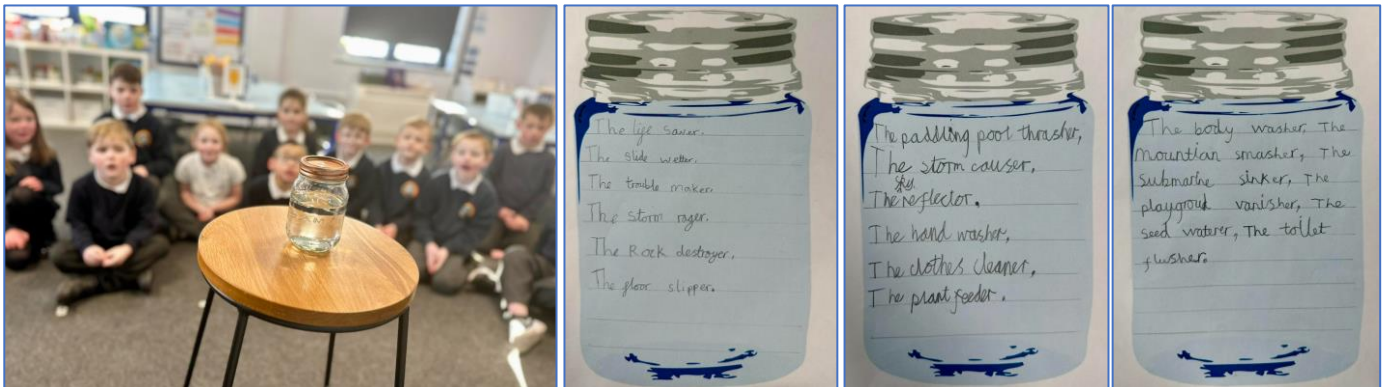 The life saver.
The slide wetter.
The trouble maker.
The storm rager.
The Rock destroyer.
The floor slipper.
The paddling pool thrasher,
The storm causer,
sky
The reflector.
The hand washer,
The clothes cleaner,
The plant feeder.
The body washer, The
mountian smasher, The
submarine sinker, The
playgroud vanisher, The
seed waterer, The toilet
flusher.